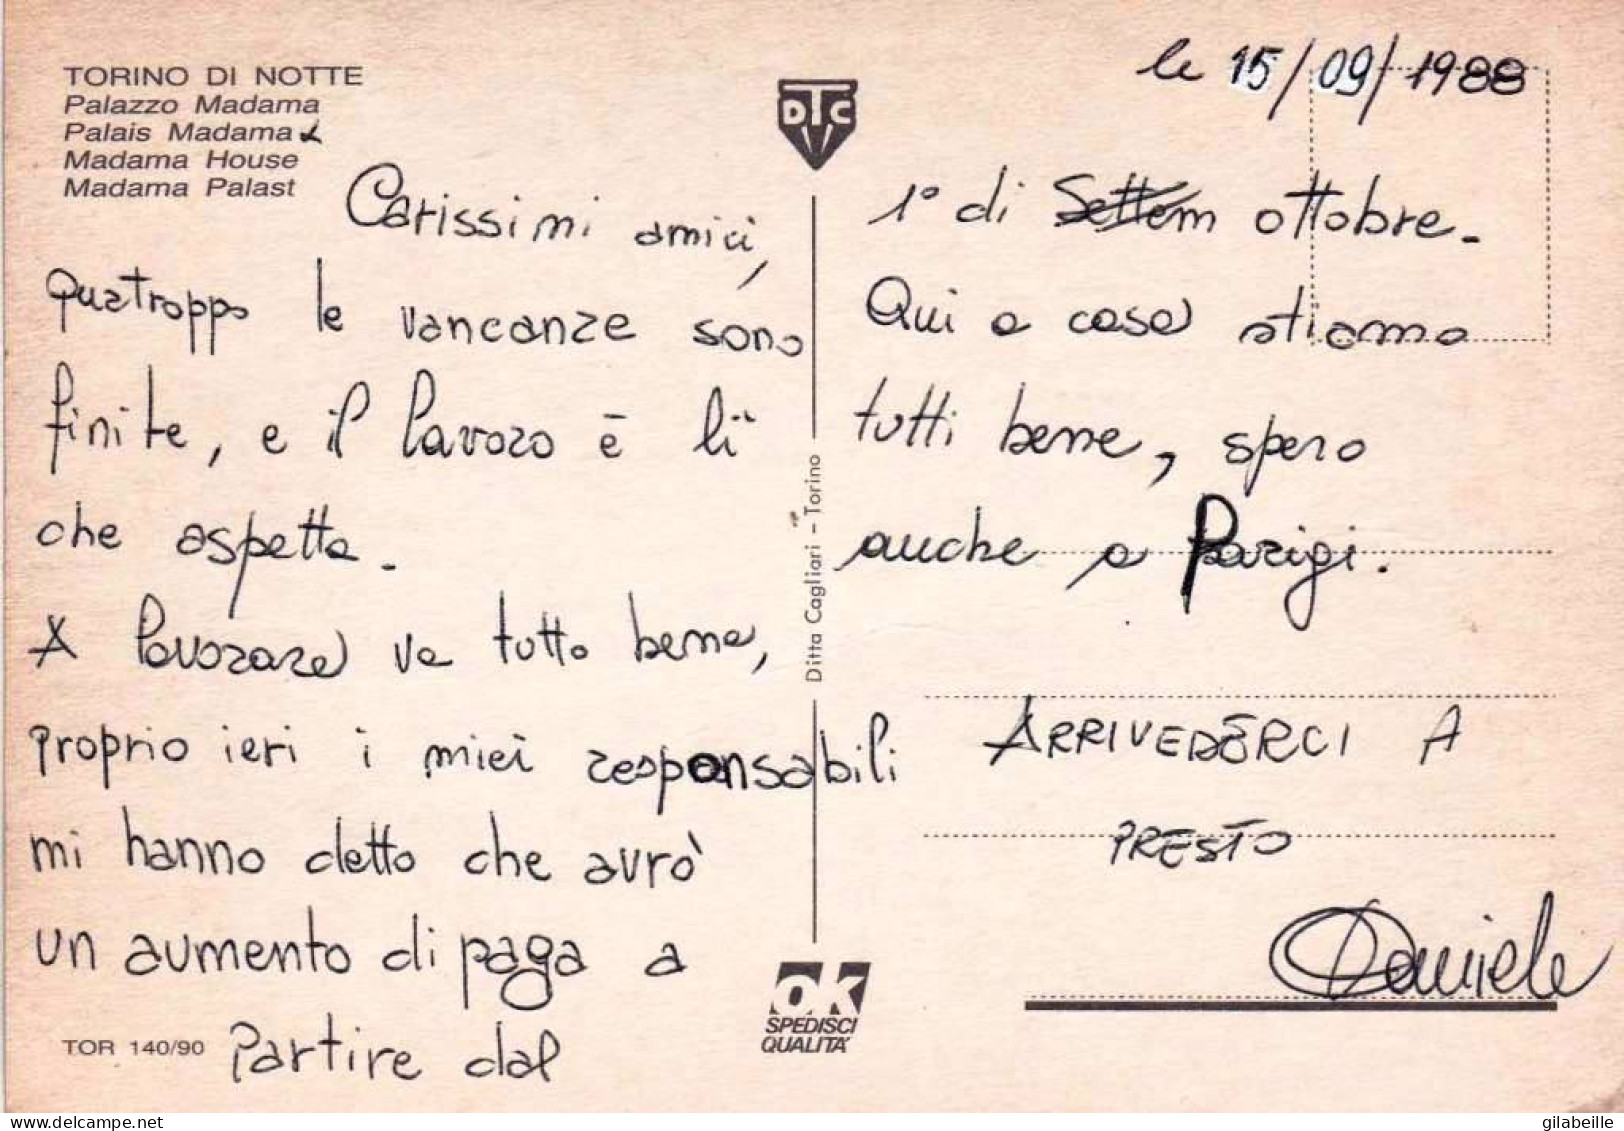 TORINO DI NOTTE
Palazzo Madama
Palais Madama
Madama House
Madama Palast
DTC
le 15/09/1988
Carissimi amici,
quatroppo le vancanze sono
finite, e il lavoro è lì
che aspetta.
A lavorare va tutto bene,
proprio ieri i miei responsabili
mi hanno detto che avrò
un aumento di paga a
partire dal
1° di Settem ottobre.
Qui a casa stiamo
tutti bene, spero
anche a Parigi.
ARRIVEDERCI A
PRESTO
Daniele
Ditta Cagliari - Torino
OK
SPEDISCI
QUALITA'
TOR 140/90
gilabeille